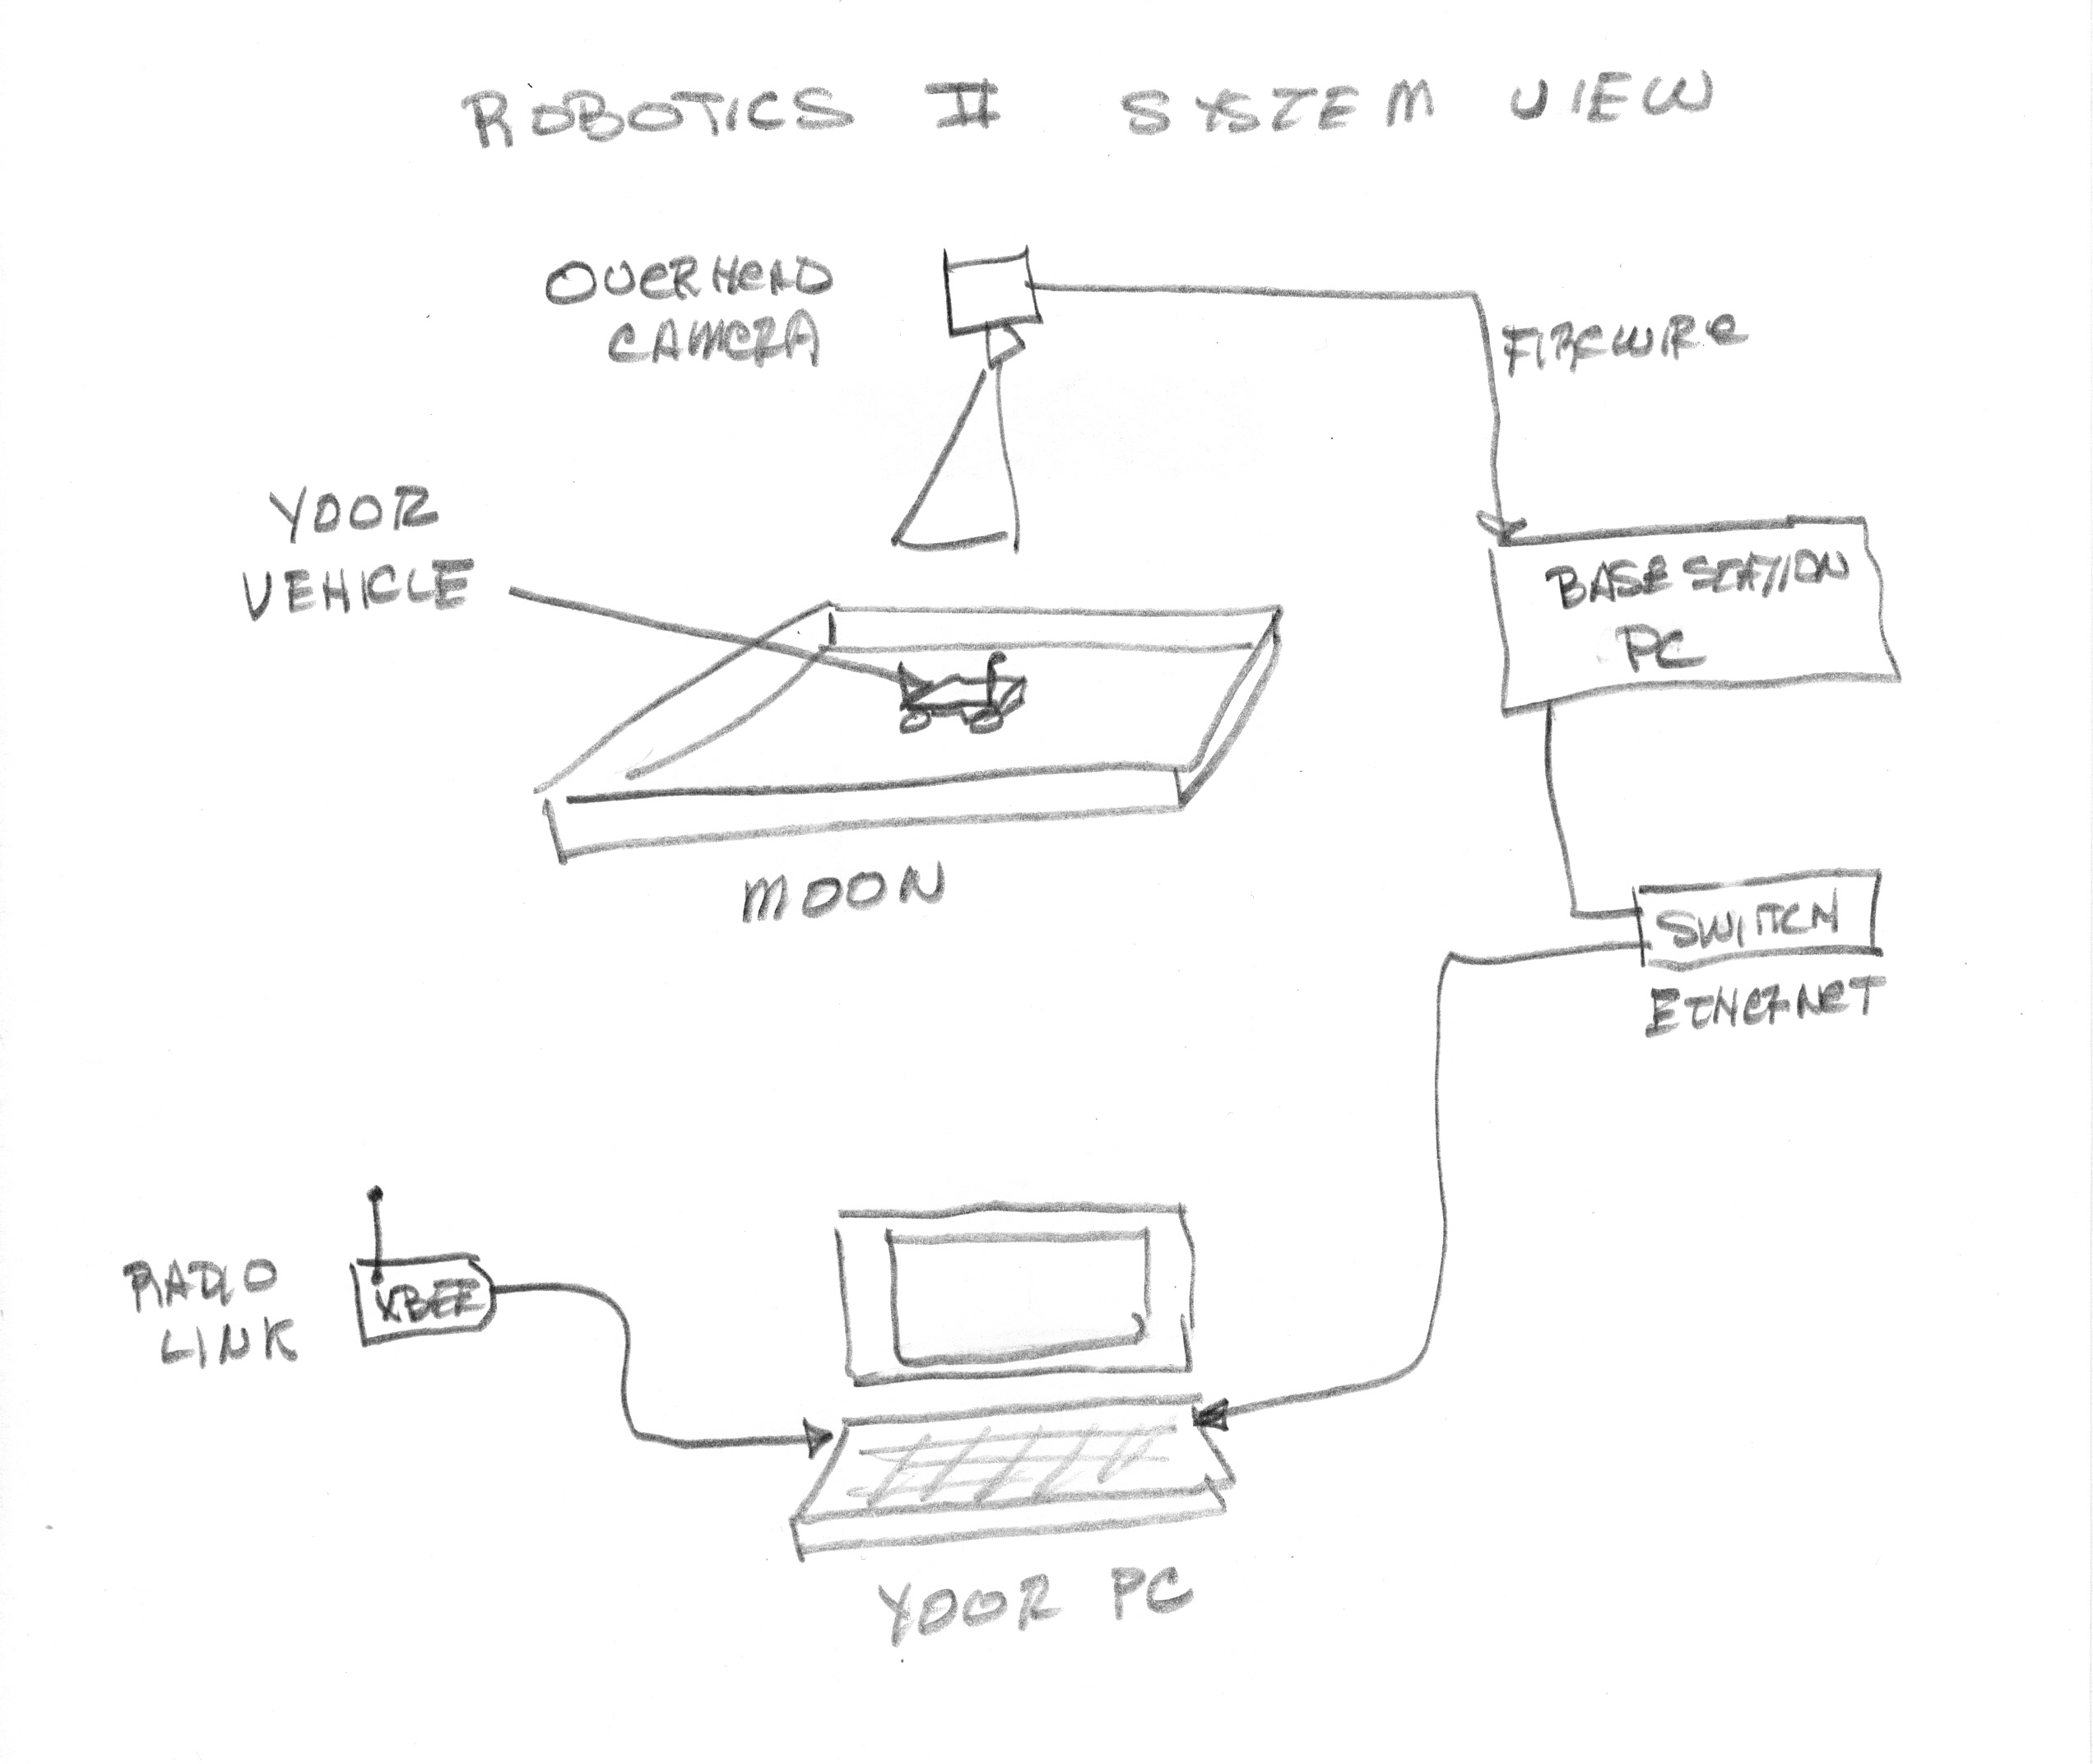 ROBOTICS II SYSTEM VIEW
OVERHEAD
CAMERA
FIREWIRE
YOUR
VEHICLE
BASE STATION
PC
MOON
SWITCH
ETHERNET
RADIO
LINK
XBEE
YOUR PC